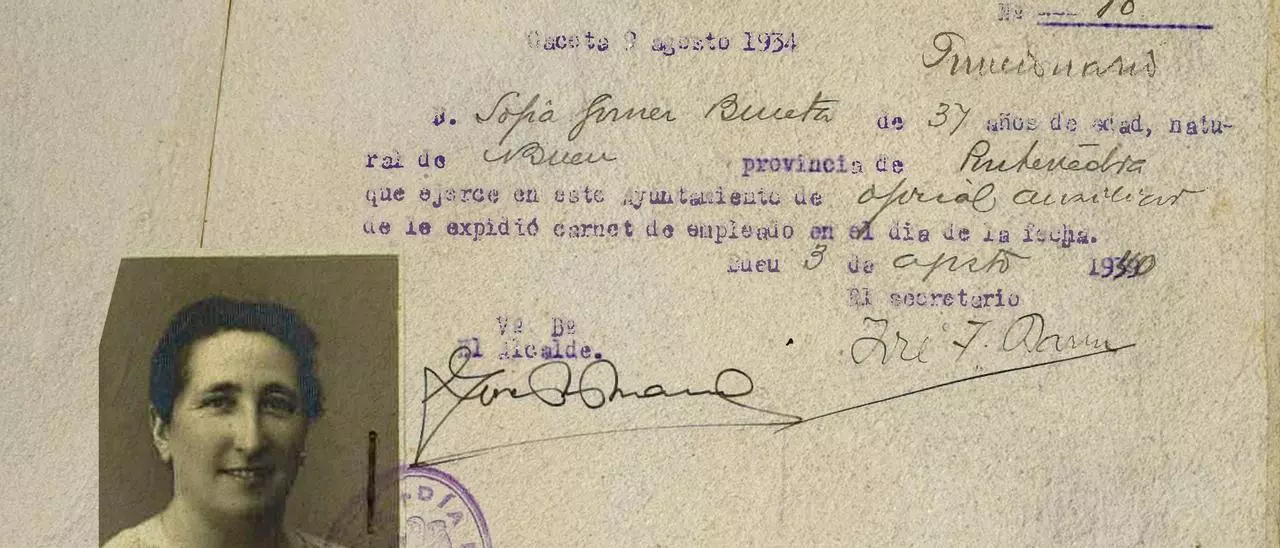 Nº --- 10
Gaceta 9 agosto 1934
Funcionario
D. Sofia Gomez de 37 años de edad, natu-
ral de Bueu provincia de Pontevedra
que ejerce en este Ayuntamiento de oficial auxiliar
de le expidió carnet de empleado en el dia de la fecha.
Bueu 3 de agosto 1940
El secretario
Vº Bº
El Alcalde.
José
DÍA